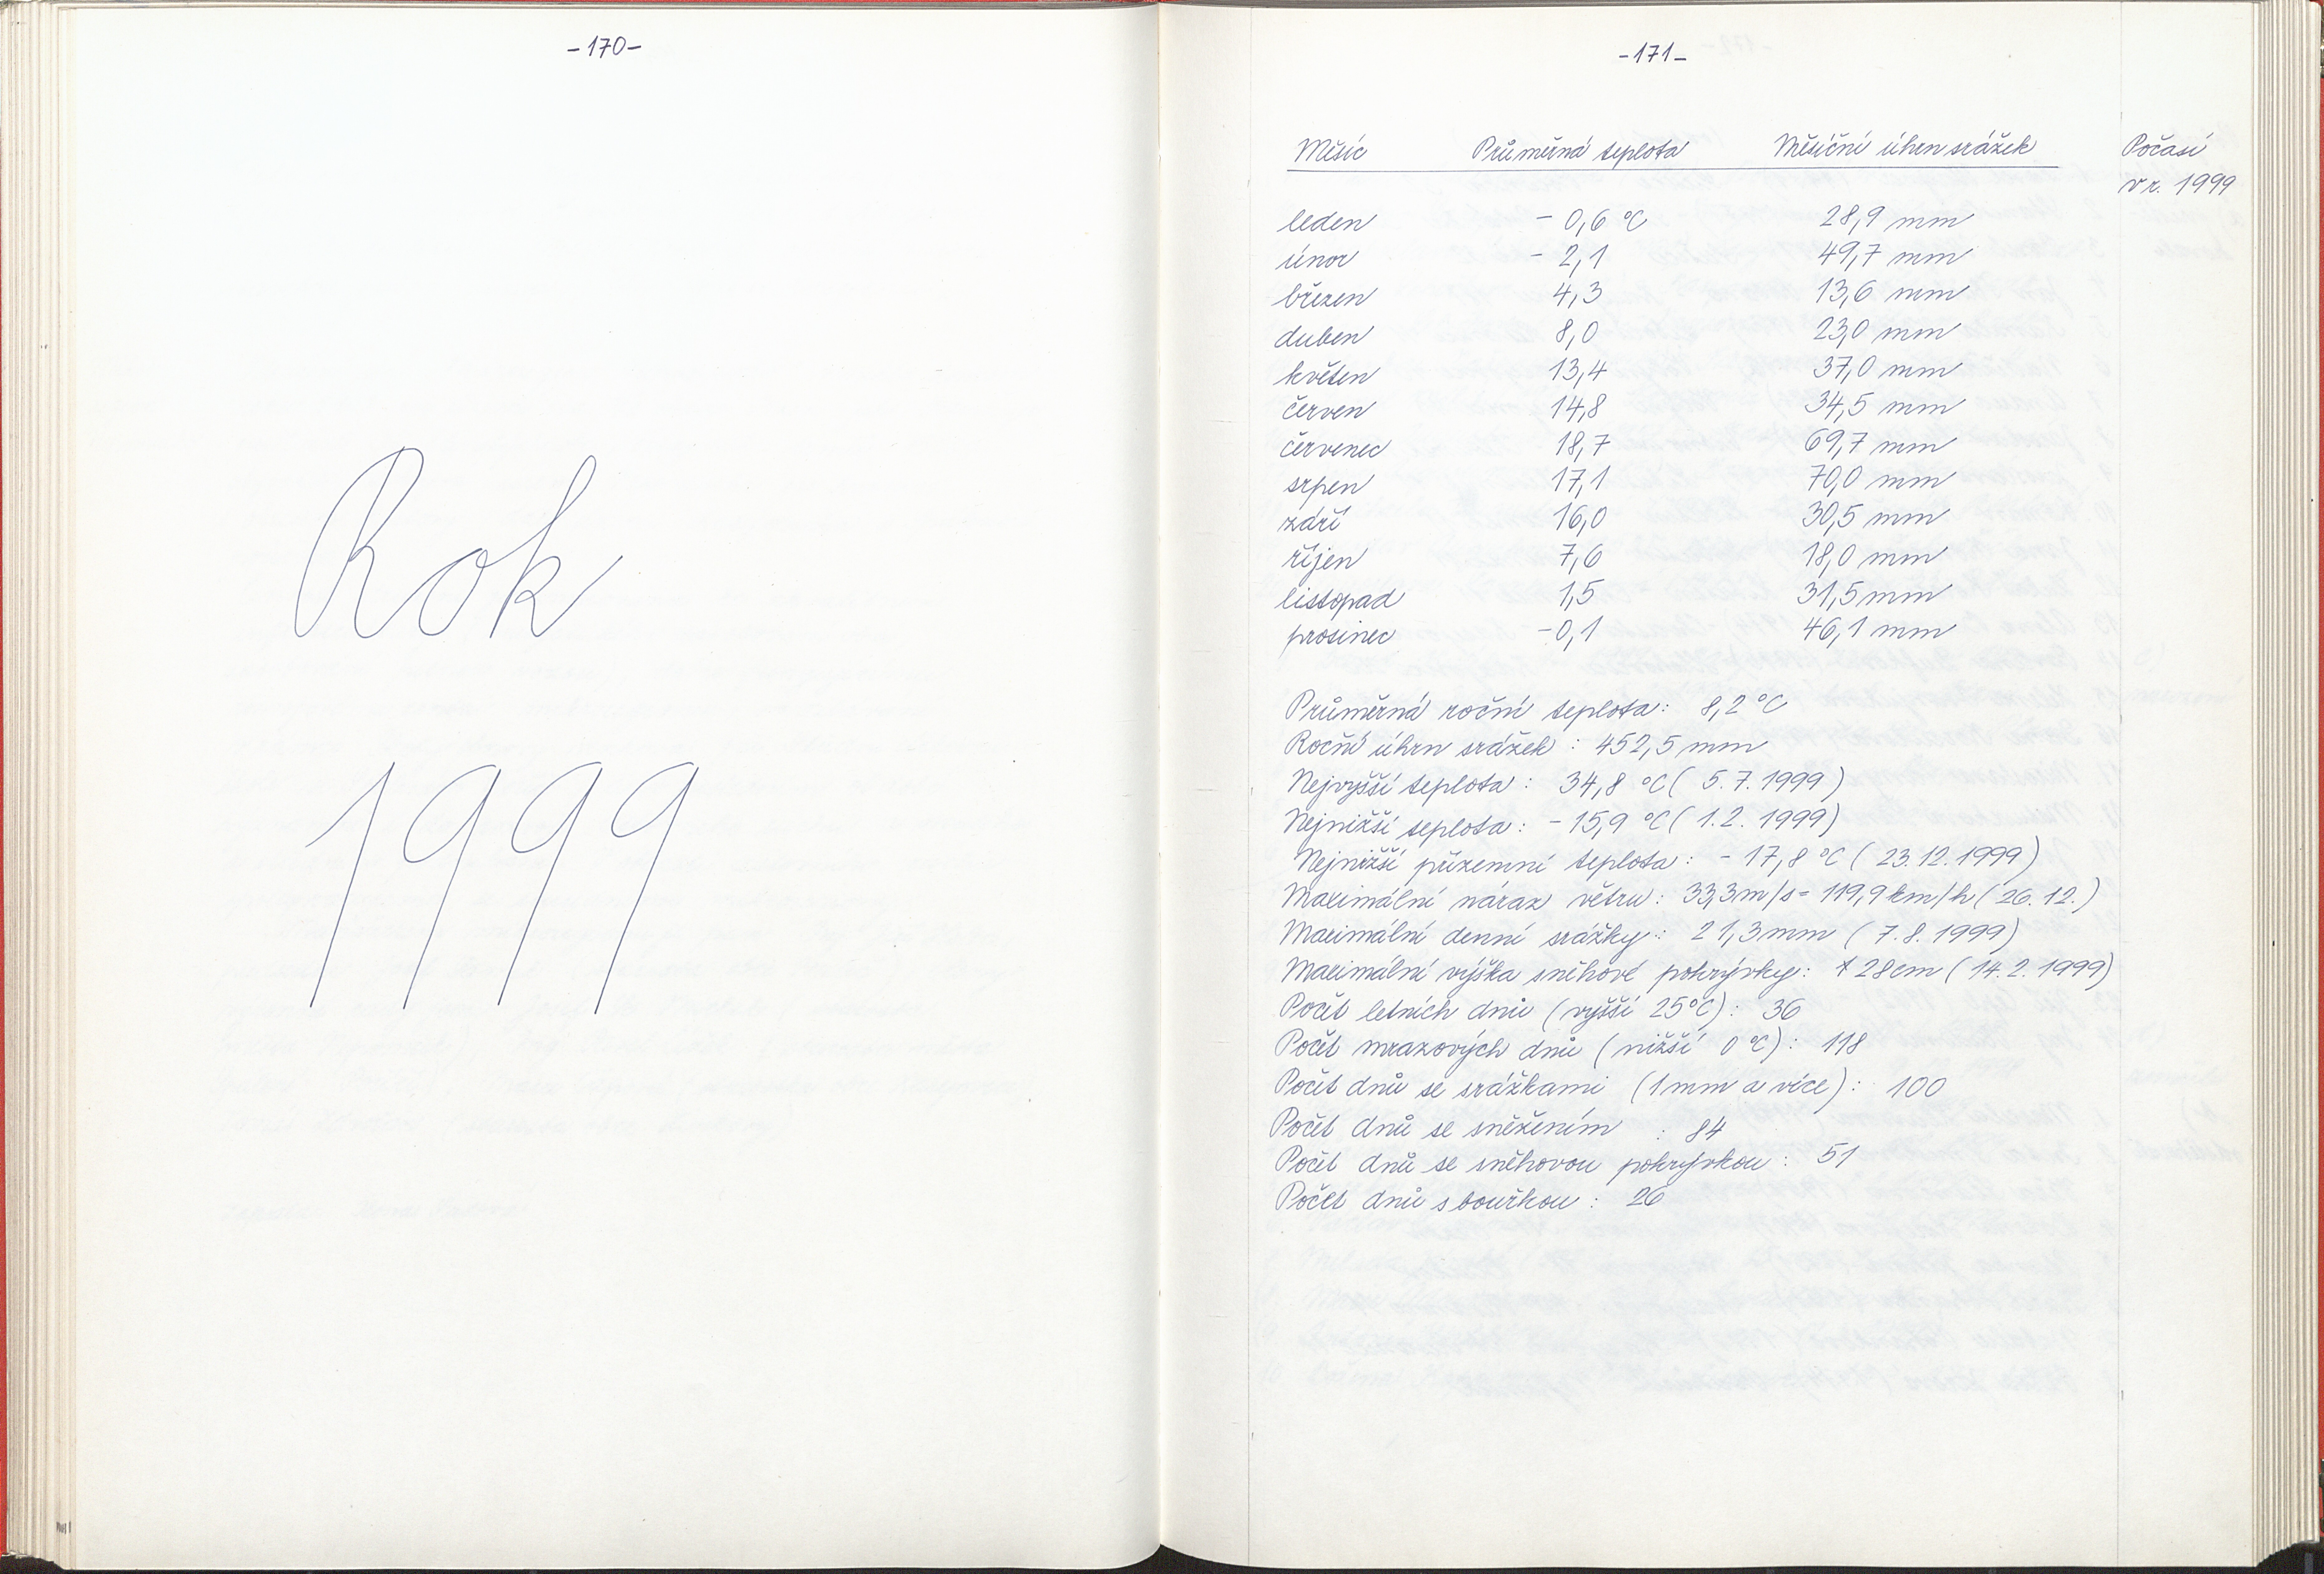 -170-
Rok
1999
-171-
Měsíc Průměrná teplota Měsíční úhrn srážek Počasí
v r. 1999
leden - 0,6 °C 28,9 mm
únor - 2,1 49,7 mm
březen 4,3 13,6 mm
duben 8,0 23,0 mm
květen 13,4 37,0 mm
červen 14,8 34,5 mm
červenec 18,7 69,7 mm
srpen 17,1 70,0 mm
září 16,0 30,5 mm
říjen 7,6 18,0 mm
listopad 1,5 31,5 mm
prosinec -0,1 46,1 mm
Průměrná roční teplota: 8,2 °C
Roční úhrn srážek : 452,5 mm
Nejvyšší teplota : 34,8 °C ( 5. 7. 1999)
Nejnižší teplota : - 15,9 °C ( 1. 2. 1999)
Nejnižší přízemní teplota : - 17,8 °C ( 23. 12. 1999)
Maximální náraz větru : 33,3 m/s = 119,9 km/h ( 26. 12.)
Maximální denní srážky : 21,3 mm ( 7. 8. 1999)
Maximální výška sněhové pokrývky : 28 cm ( 14. 2. 1999)
Počet letních dnů (vyšší 25°C) : 36
Počet mrazových dnů ( nižší 0 °C) : 118
Počet dnů se srážkami (1 mm a více) : 100
Počet dnů se sněžením : 84
Počet dnů se sněhovou pokrývkou : 51
Počet dnů s bouřkou : 26